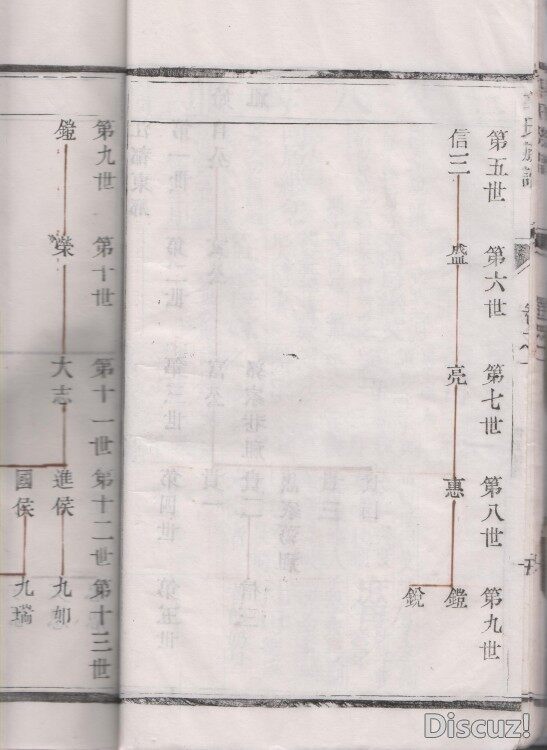 第五世
信三
第六世
盛
第七世
亮
第八世
惠
第九世
鎧
銳
第九世
鎧
第十世
榮
第十一世
大志
第十二世
進侯
國侯
第十三世
九如
九瑞
Discuz!